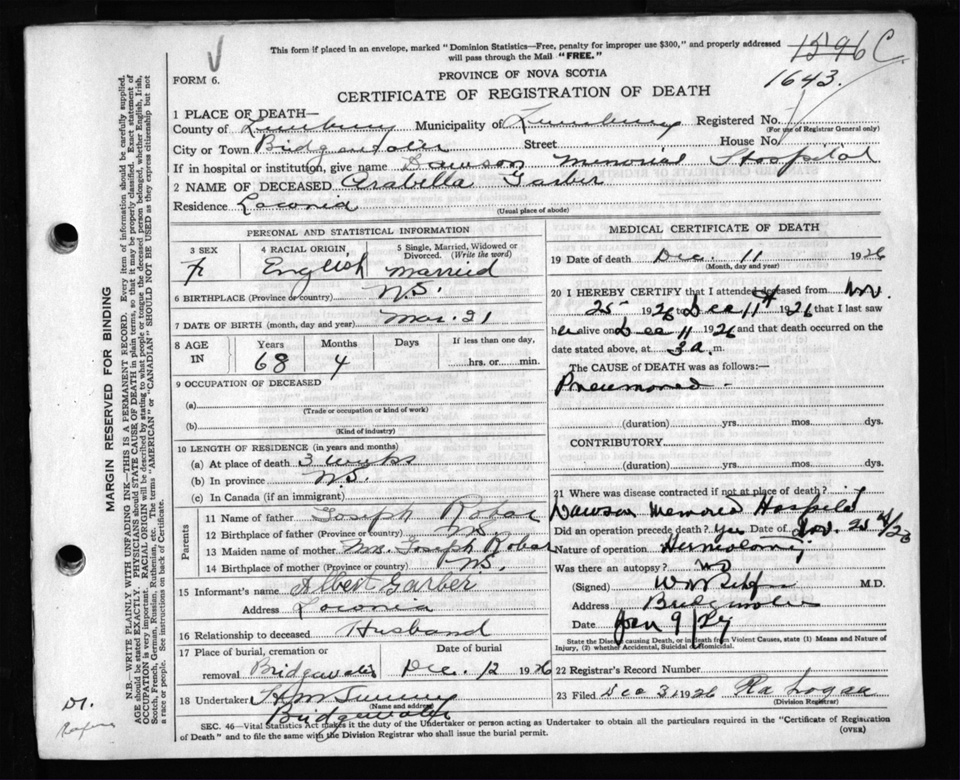 This form if placed in an envelope, marked "Dominion Statistics—Free, penalty for improper use $300," and properly addressed
will pass through the Mail "FREE."
1596 C
1643.
FORM 6.
PROVINCE OF NOVA SCOTIA
CERTIFICATE OF REGISTRATION OF DEATH
1 PLACE OF DEATH—
County of Lunenburg Municipality of Lunenburg Registered No.
(For use of Registrar General only)
City or Town Bridgewater Street House No.
If in hospital or institution, give name Dawson Memorial Hospital
2 NAME OF DECEASED Arabella Garber
Residence Laconia
(Usual place of abode)
PERSONAL AND STATISTICAL INFORMATION
3 SEX
F
4 RACIAL ORIGIN
English
5 Single, Married, Widowed or Divorced. (Write the word)
Married
6 BIRTHPLACE (Province or country) N.S.
7 DATE OF BIRTH (month, day and year) Mar. 21
8 AGE IN
Years Months Days If less than one day,
68 4 hrs. or min.
9 OCCUPATION OF DECEASED
(a)
(Trade or occupation or kind of work)
(b)
(Kind of industry)
10 LENGTH OF RESIDENCE (in years and months)
(a) At place of death 3 wyks
(b) In province N.S.
(c) In Canada (if an immigrant)
Parents
11 Name of father Joseph Robar
12 Birthplace of father (Province or country) NS
13 Maiden name of mother Mrs. Joseph Robar
14 Birthplace of mother (Province or country) N.S.
15 Informant's name Albert Garber
Address Laconia
16 Relationship to deceased Husband
17 Place of burial, cremation or removal Bridgewater
Date of burial
Dec. 12 1926
18 Undertaker
(Name and address)
Bridgewater
MEDICAL CERTIFICATE OF DEATH
19 Date of death Dec. 11 1926
(Month, day and year)
20 I HEREBY CERTIFY that I attended deceased from Nov.
25 1926 to Dec 11th 1926 that I last saw
her alive on Dec 11 1926 and that death occurred on the
date stated above, at 3 a. m.
The CAUSE of DEATH was as follows:—
Pneumonia -
(duration) yrs. mos. dys.
CONTRIBUTORY
(duration) yrs. mos. dys.
21 Where was disease contracted if not at place of death?
Dawson Memorial Hospital
Did an operation precede death? Yes Date of Nov. 25th/26
Nature of operation
Was there an autopsy? No
(Signed) M.D.
Address Bridgewater
Date Jan 9/27
State the Disease causing Death, or in death from Violent Causes, state (1) Means and Nature of
Injury, (2) whether Accidental, Suicidal or Homicidal.
22 Registrar's Record Number
23 Filed Dec 31 1926 Ra Logan
(Division Registrar)
SEC. 46—Vital Statistics Act makes it the duty of the Undertaker or person acting as Undertaker to obtain all the particulars required in the "Certificate of Registration
of Death" and to file the same with the Division Registrar who shall issue the burial permit.
(OVER)
MARGIN RESERVED FOR BINDING
N.B.—WRITE PLAINLY WITH UNFADING INK—THIS IS A PERMANENT RECORD. Every item of information should be carefully supplied.
AGE should be stated EXACTLY. PHYSICIANS should STATE CAUSE OF DEATH in plain terms, so that it may be properly classified. Exact statement of
OCCUPATION is very important. RACIAL ORIGIN will be described by stating to what people or tongue the deceased person belonged, whether English, Irish,
Scotch, French, German, Russian, Ruthenian, etc. The terms "AMERICAN" or "CANADIAN" SHOULD NOT BE USED as they express citizenship but not
a race or people. See instructions on back of Certificate.